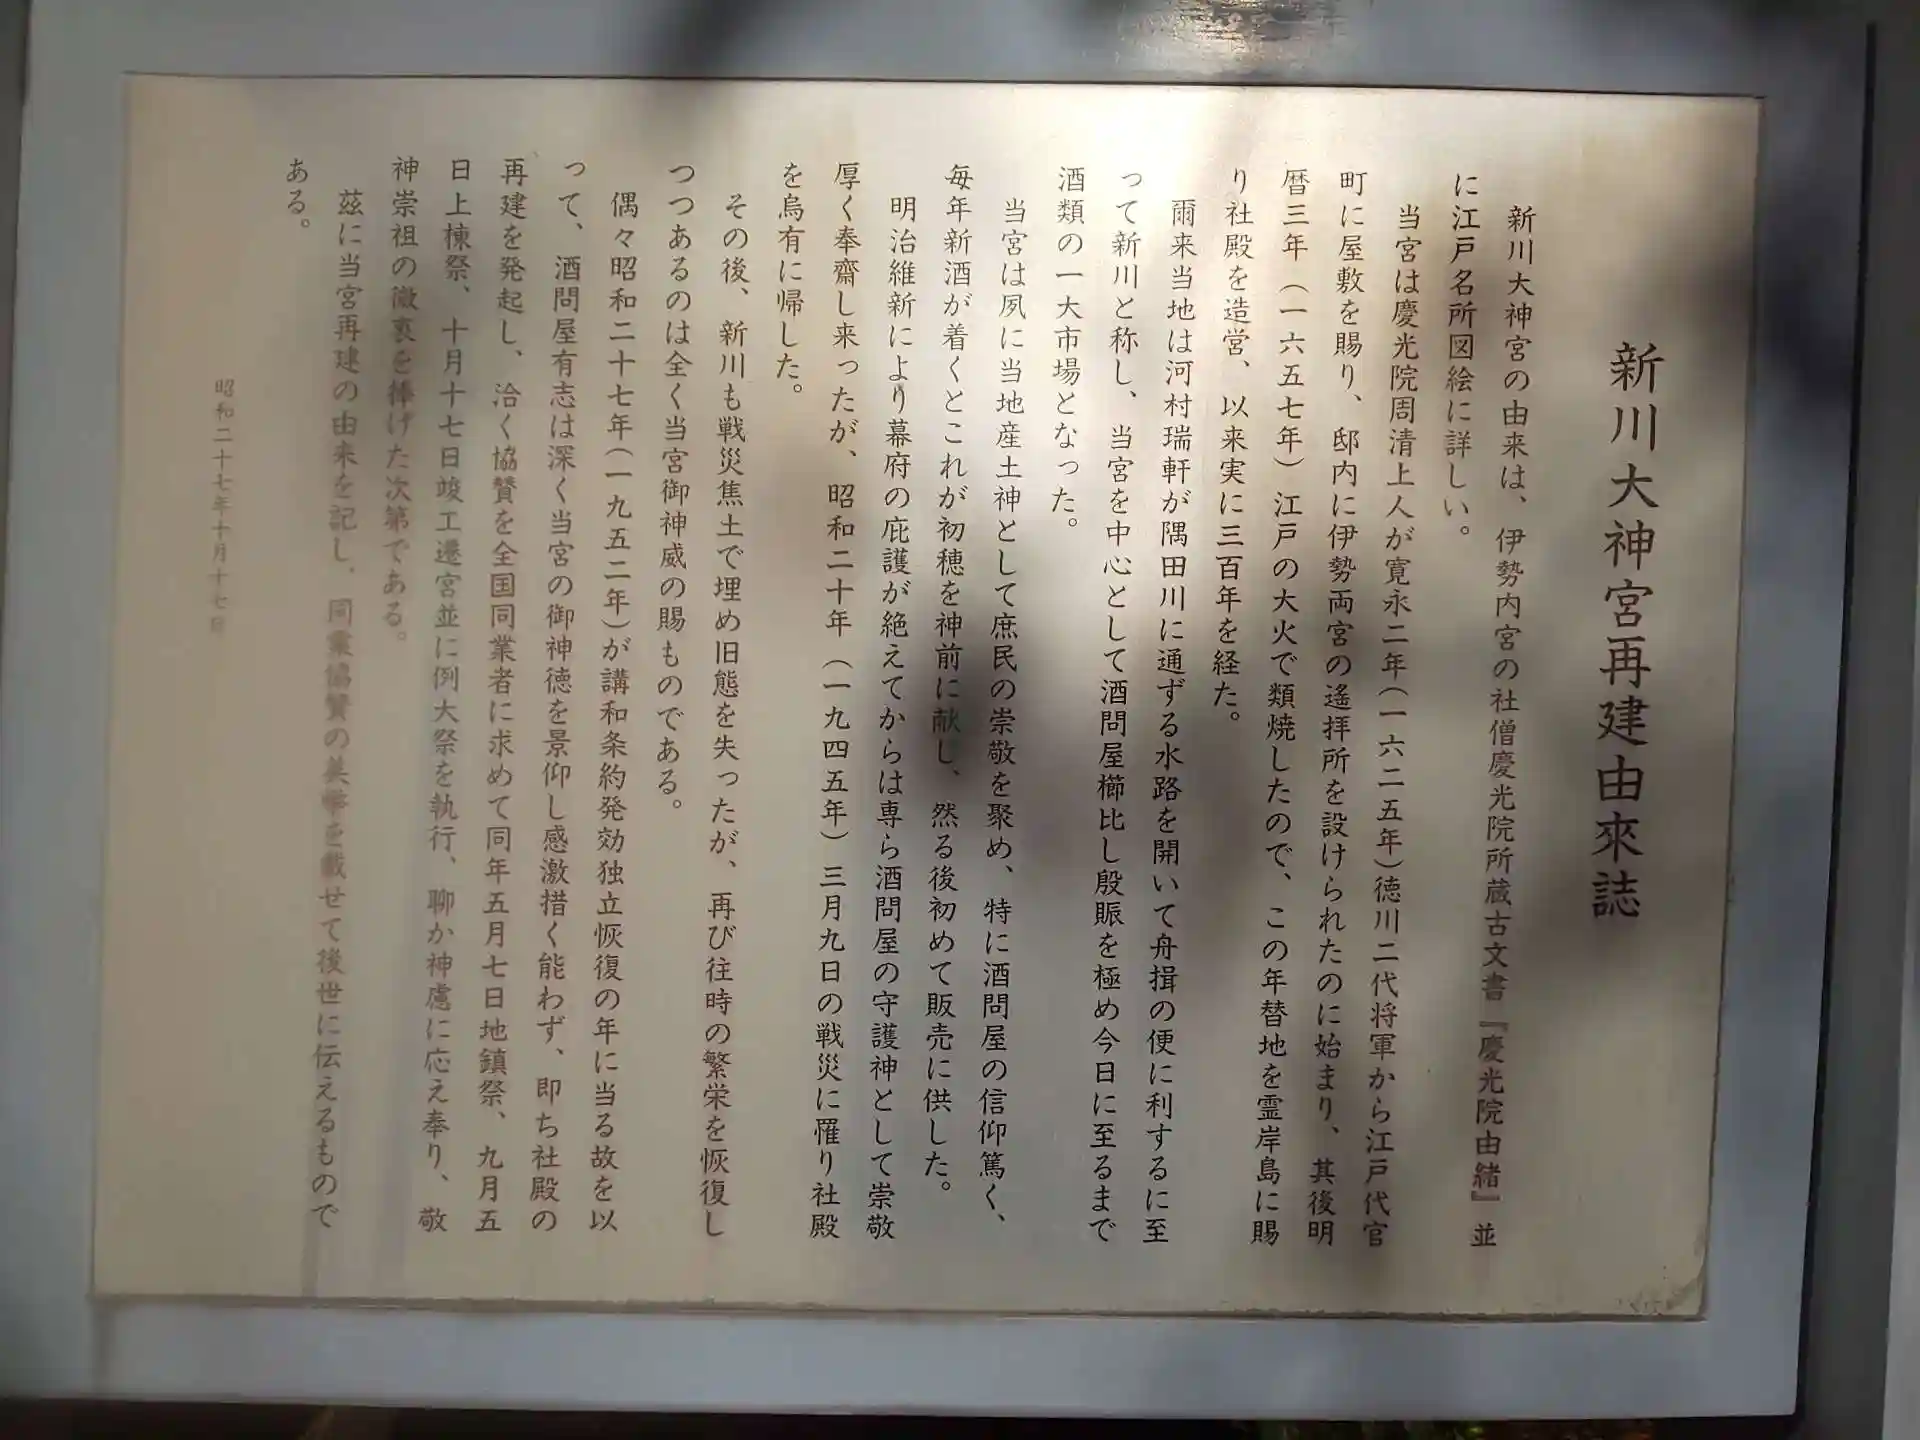 新川大神宮再建由來誌
新川大神宮の由来は、伊勢内宮の社僧慶光院所蔵古文書『慶光院由緒』並
に江戸名所図絵に詳しい。
当宮は慶光院周清上人が寛永二年(一六二五年)徳川二代将軍から江戸代官
町に屋敷を賜り、邸内に伊勢両宮の遙拝所を設けられたのに始まり、其後明
暦三年(一六五七年)江戸の大火で類焼したので、この年替地を霊岸島に賜
り社殿を造営、以来実に三百年を経た。
爾来当地は河村瑞軒が隅田川に通ずる水路を開いて舟揖の便に利するに至
って新川と称し、当宮を中心として酒問屋櫛比し殷賑を極め今日に至るまで
酒類の一大市場となった。
当宮は夙に当地産土神として庶民の崇敬を聚め、特に酒問屋の信仰篤く、
毎年新酒が着くとこれが初穂を神前に献じ、然る後初めて販売に供した。
明治維新により幕府の庇護が絶えてからは専ら酒問屋の守護神として崇敬
厚く奉齋し来ったが、昭和二十年(一九四五年)三月九日の戦災に罹り社殿
を烏有に帰した。
その後、新川も戦災焦土で埋め旧態を失ったが、再び往時の繁栄を恢復し
つつあるのは全く当宮御神威の賜ものである。
偶々昭和二十七年(一九五二年)が講和条約発効独立恢復の年に当る故を以
って、酒問屋有志は深く当宮の御神徳を景仰し感激措く能わず、即ち社殿の
再建を発起し、洽く協賛を全国同業者に求めて同年五月七日地鎮祭、九月五
日上棟祭、十月十七日竣工遷宮並に例大祭を執行、聊か神慮に応え奉り、敬
神崇祖の微衷を捧げた次第である。
茲に当宮再建の由来を記し、同業協賛の美挙を載せて後世に伝えるもので
ある。
昭和二十七年十月十七日